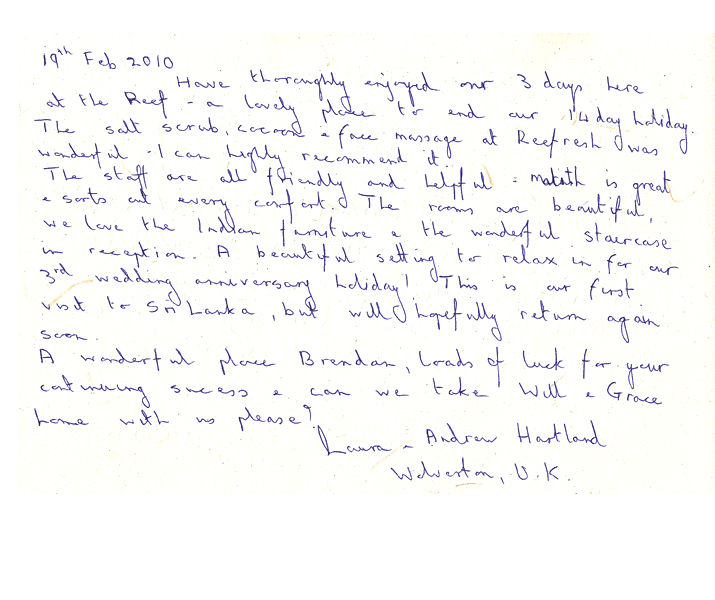 19th Feb 2010
Have thoroughly enjoyed our 3 days here
at the Reef - a lovely place to end our 14 day holiday.
The salt scrub, cocoon & face massage at Reefresh was
wonderful - I can highly recommend it.
The staff are all friendly and helpful - is great
& sorts out every comfort. The rooms are beautiful,
we love the Indian furniture & the wonderful staircase
in reception. A beautiful setting to relax in for our
3rd wedding anniversary holiday! This is our first
visit to Sri Lanka, but will hopefully return again
soon.
A wonderful place Brendan, loads of luck for your
continuing sucess & can we take Will & Grace
home with us please?
Laura & Andrew Hartland
Wolverton, U.K.